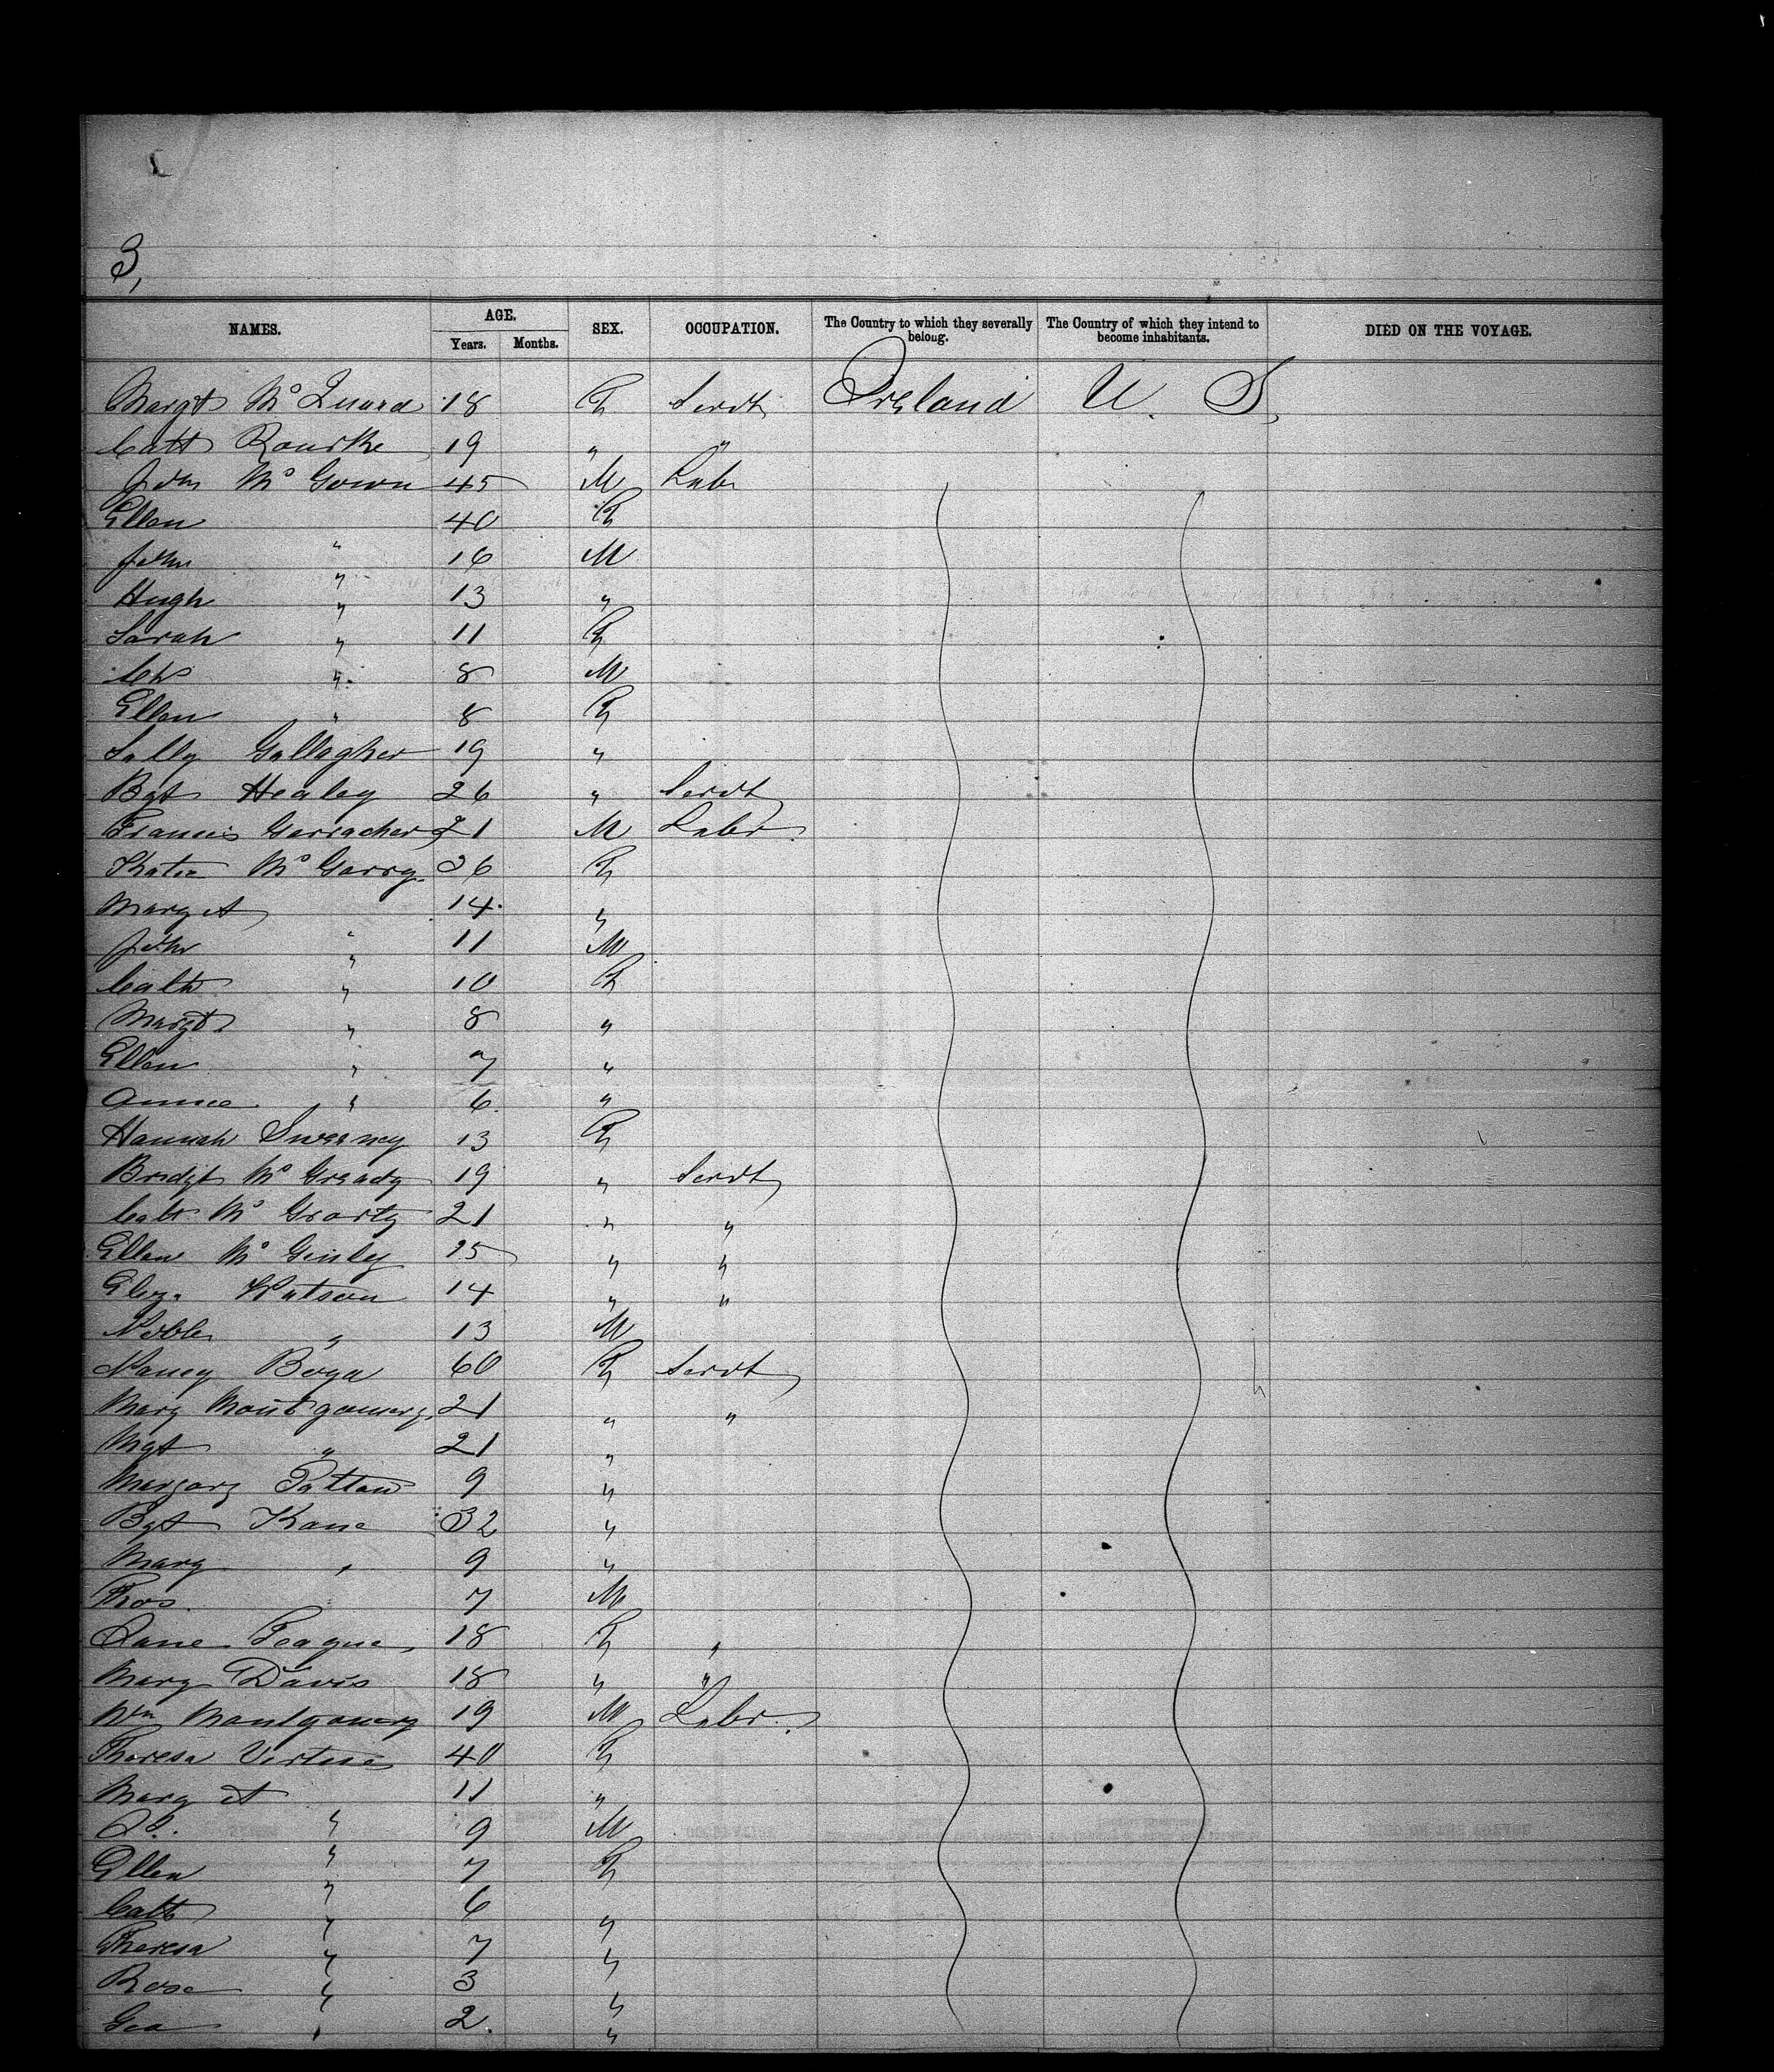 3,
NAMES. AGE. SEX. OCCUPATION. The Country to which they severally belong. The Country of which they intend to become inhabitants. DIED ON THE VOYAGE.
Years. Months.
Margt Mc Quard 18 F Servt Ireland U. S.
Cath Rourke 19 " "
John Mc Gowen 45 M Labr
Ellen 40 F
John " 16 M
Hugh " 13 "
Sarah " 11 F
Chs " 8 M
Ellen " 8 F
Sally Gallagher 19 "
Bgt Healey 26 " Servt
Francis Gerracher 21 M Labr
Katie Mc Garry 36 F
Marget 14 "
John " 11 M
Cath " 10 F
Margt " 8 "
Ellen " 7 "
Annie " 6 "
Hannah Sweeney 13 F
Bridgt Mc Gready 19 " Servt
Cath Mc Grorty 21 " "
Ellen Mc Ginley 25 " "
Eliza Watson 14 " "
Noble " 13 M
Nancy Boya 60 F Servt
Mary Montgomery 21 " "
Mgt " 21 "
Margary Patton 9 "
Bgt Kane 32 "
Mary " 9 "
Thos 7 M
Jane Feague 18 F "
Mary Davis 18 " "
Wm Montgomery 19 M Labr
Theresa Virtue 40 F
Marget 11 "
Js. " 9 M
Ellen " 7 F
Cath " 6 "
Theresa " 7 "
Rose " 3 "
Geo " 2 "